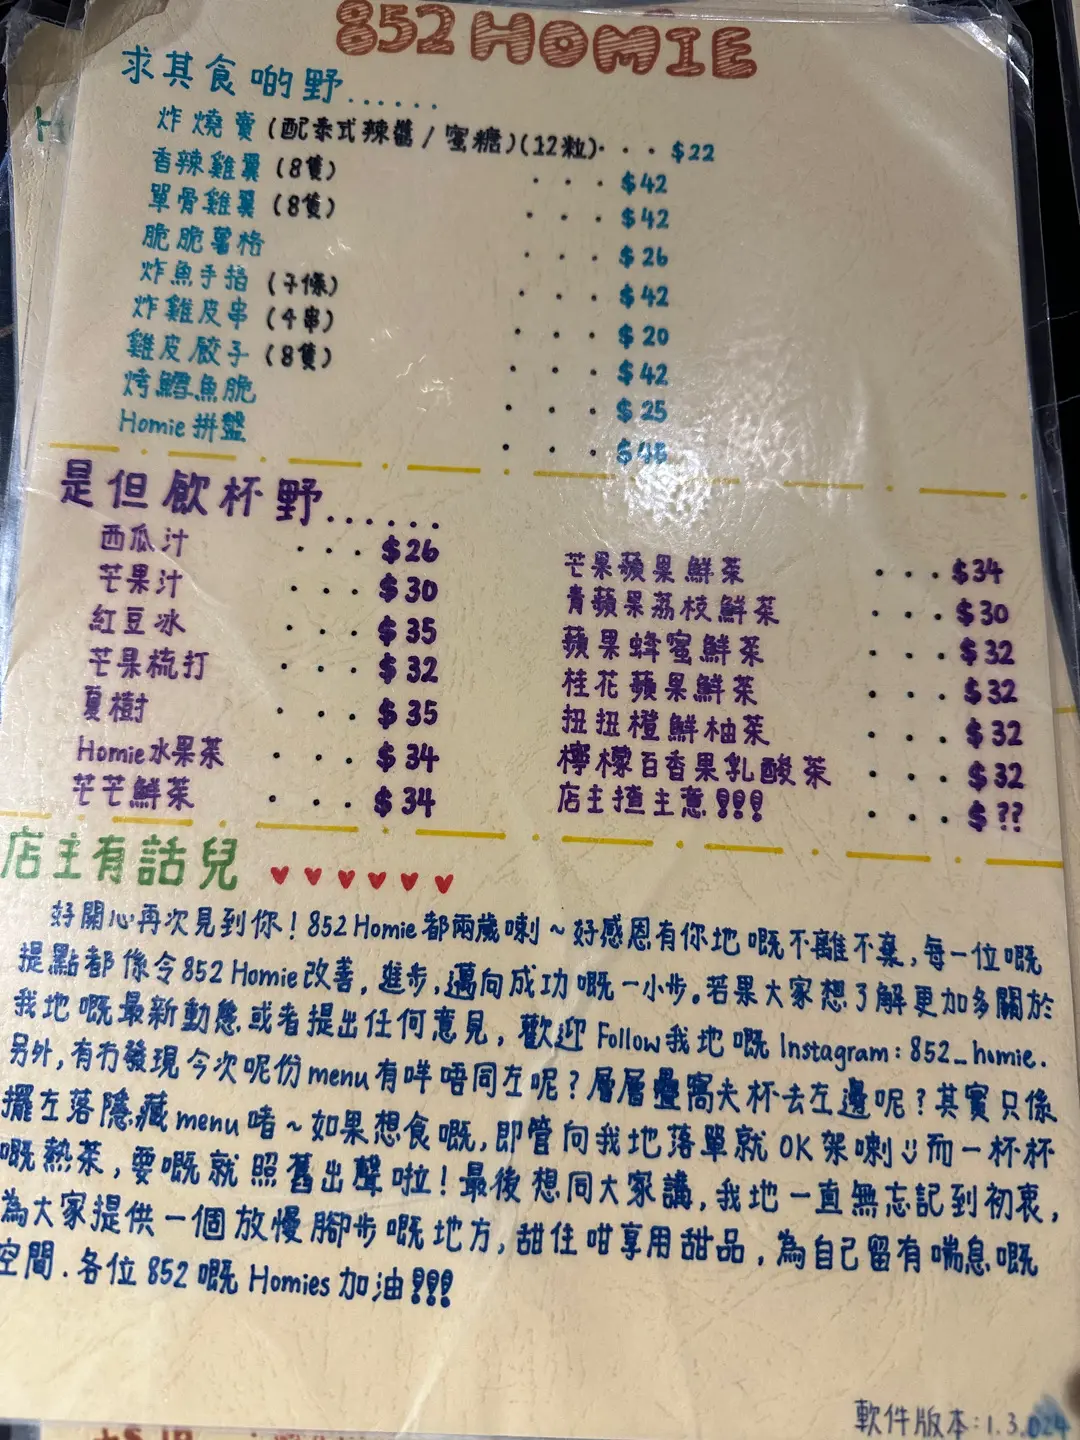 852 HOMIE
求其食啲野......
炸燒賣(配泰式辣醬/蜜糖)(12粒)...$22
香辣雞翼(8隻)...$42
單骨雞翼(8隻)...$42
脆脆薯格...$26
炸魚手指(7條)...$42
炸雞皮串(4串)...$20
雞皮餃子(8隻)...$42
烤鱈魚脆...$25
Homie拼盤...$48
是但飲杯野......
西瓜汁...$26
芒果汁...$30
紅豆冰...$35
芒果梳打...$32
夏樹...$35
Homie水果茶...$34
芒芒鮮茶...$34
芒果蘋果鮮茶...$34
青蘋果荔枝鮮茶...$30
蘋果蜂蜜鮮茶...$32
桂花蘋果鮮茶...$32
扭扭橙鮮柚茶...$32
檸檬百香果乳酸茶...$32
店主揸主意!!!...$??
店主有話兒 ♥♥♥♥♥♥
好開心再次見到你！852 Homie都兩歲喇~好感恩有你地嘅不離不棄,每一位嘅
提點都係令852 Homie改善,進步,邁向成功嘅一小步。若果大家想了解更加多關於
我地嘅最新動態或者提出任何意見,歡迎Follow我地嘅Instagram:852_homie.
另外,有冇發現今次呢份menu有咩唔同左呢?層層疊窩夫杯去左邊呢?其實只係
擺左落隱藏menu啫~如果想食嘅,即管向我地落單就OK架喇☺而一杯杯
嘅熱茶,要嘅就照舊出聲啦!最後想同大家講,我地一直無忘記到初衷,
為大家提供一個放慢腳步嘅地方,甜住咁享用甜品,為自己留有喘息嘅
空間.各位852嘅Homies加油!!!
軟件版本:1.3.024